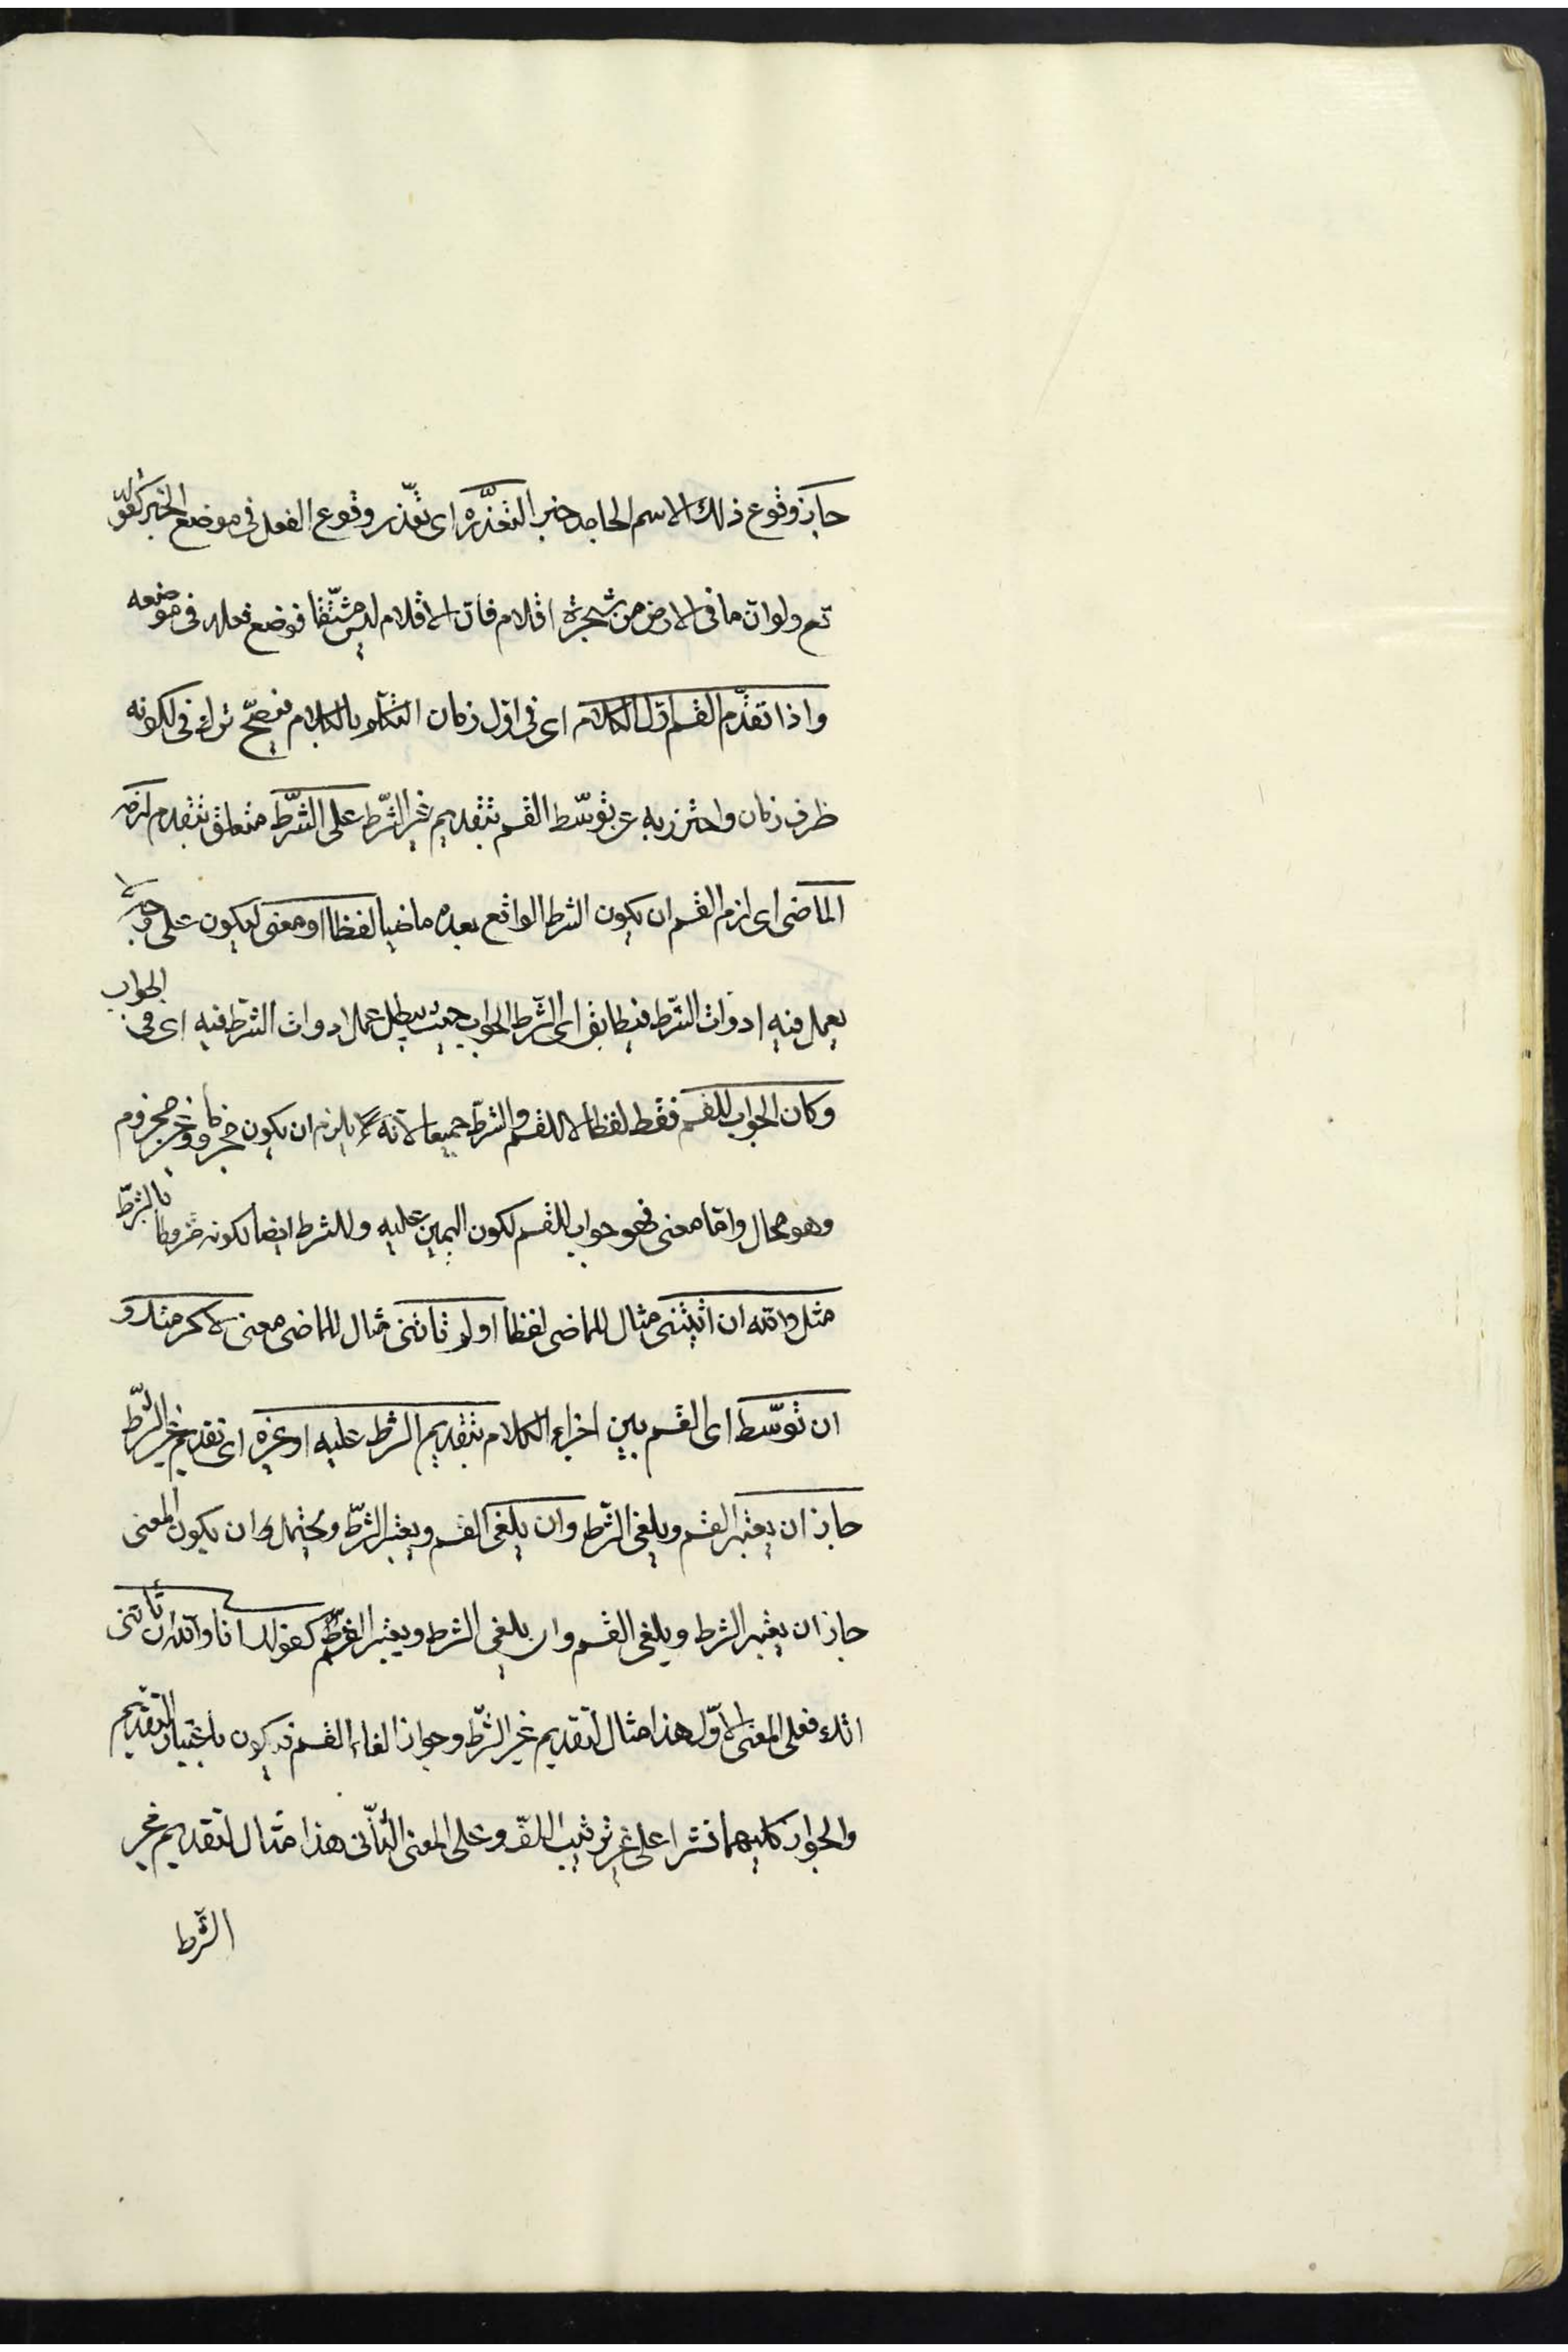 جاز وقوع ذلك الاسم الجامد خبر التعذره اى تعذر وقوع الفعل فى موضع الخبر كقوله
تع ولو ان ما فى الارض من شجرة اقلام فان الاقلام ليس مشتقا فوضع فعله فى موضعه
واذا تقدم القسم اول الكلام اى فى اول زمان التكلم بالكلام فيصح ترك فى لكونه
ظرف زمان واحترز به عن توسط القسم بتقديم غير الشرط على الشرط متعلق بتقدم لزمه
الماضى اى لزم القسم ان يكون الشرط الواقع بعده ماضيا لفظا او معنى ليكون على وجه لا
يعمل فيه ادوات الشرط فيطابق اى الشرط الجواب حيث يبطل عمل ادوات الشرط فيه اى فى الجواب
وكان الجواب للقسم فقط لفظا لا للقسم والشرط جميعا لانه يلزم ان يكون مجزوما وغير مجزوم
وهو محال واما معنى فهو جواب للقسم لكون اليمين عليه وللشرط ايضا لكونه مشروطا بالشرط
مثل والله ان اتيتنى مثال للماضى لفظا او لم تاتنى مثال للماضى معنى لاكرمتك و
ان توسط اى القسم بين اجزاء الكلام بتقديم الشرط عليه او غيره اى تقديم غير الشرط
جاز ان يعتبر القسم ويلغى الشرط وان يلغى القسم ويعتبر الشرط ويحتمل ان يكون المعنى
جاز ان يعتبر الشرط ويلغى القسم وان يلغى الشرط ويعتبر القسم كقولك انا والله ان تاتنى
اتك فعلى المعنى الاول هذا مثال لتقديم غير الشرط وجواز الغاء القسم فيكون باعتبار التقديم
والجواز كليهما نشرا على غير ترتيب اللف وعلى المعنى الثانى هذا مثال لتقديم غير
الشرط